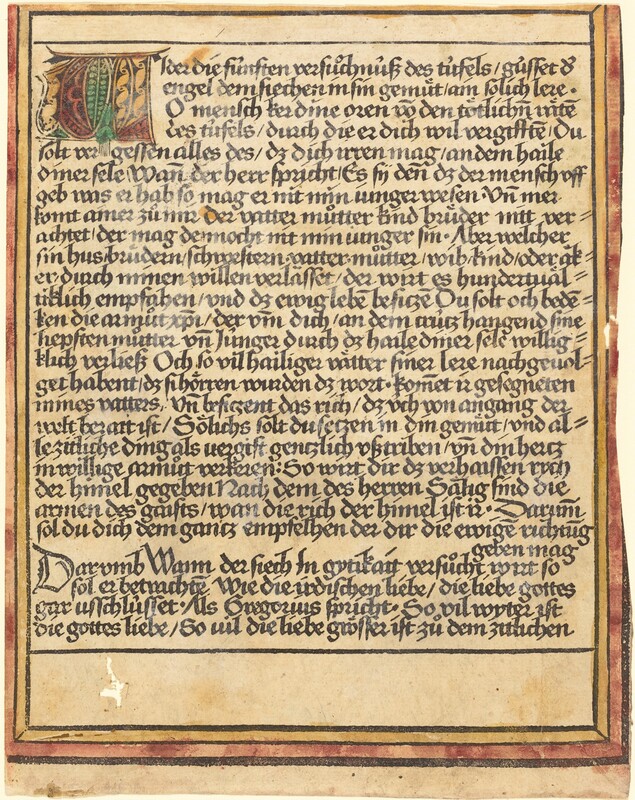 Wider die fünften versůchnuß des tüfels / güsset d̓
engel dem siechen in sin gemüt / ain solich lere ·
O mensch ker dine oren vō den tötlichn̄ räte
des tüfels / durch die er dich wil vergifften / Du
solt vergessen alles des / dz dich irren mag / an dem haile
diner sele Wan̄ der herr spricht / Es sÿ den̄ dz der mensch vff
geb was er hab so mag er nit min iunger wesen · Vn̄ mer
komt ainer zů mir der vatter můtter kind brůder nitt ver =
achtet / der mag de mocht nit min iunger sin · Aber welcher
sin hus / brüdern / schwestern vatter můtter / wib / kind / oder äk =
er / durch minen willen verlässet / der wirt es hundertuäl =
tiklich empfahen / vnd dz ewig lebē besiczē Du solt och bedē =
ken die armůt xp̄i / der vm̄ dich / an dem crütz hangend sine
liepsten můtter vn̄ Junger durch dz haile diner sele willig =
klich verließ Och so vil hailiger vätter siner lere nachgeuol =
get habent / dz si hörren wurden dz wort · kom̄et ir gesegneten
mines vatters, vn̄ besiczent das rich / dz vch von angang der
welt berait ist / Sölichs solt du setzen in din gemüt / vnd al =
le zitliche ding als vergift gentzlich vßtriben / vn̄ din hertz
in willige armůt verkeren : So wirt dir dz verhaissen rych
der him̄el gegeben Nach dem des herren Sälig sind die
armen des gaists / wan die rich der him̄el ist ir · Darum̄
sol du dich dem gantz empfelhen der dir die ewigē richtūg
geben mag
Darvmb Wann der siech In gytikait versůcht wirt so
sol er betrachtē Wie die irdischen liebe / die liebe gottes
gar usschlüsset · Als Gregorius spricht · So vil wyter ist
die gottes liebe / So vil die liebe grösser ist zů dem zitlichen